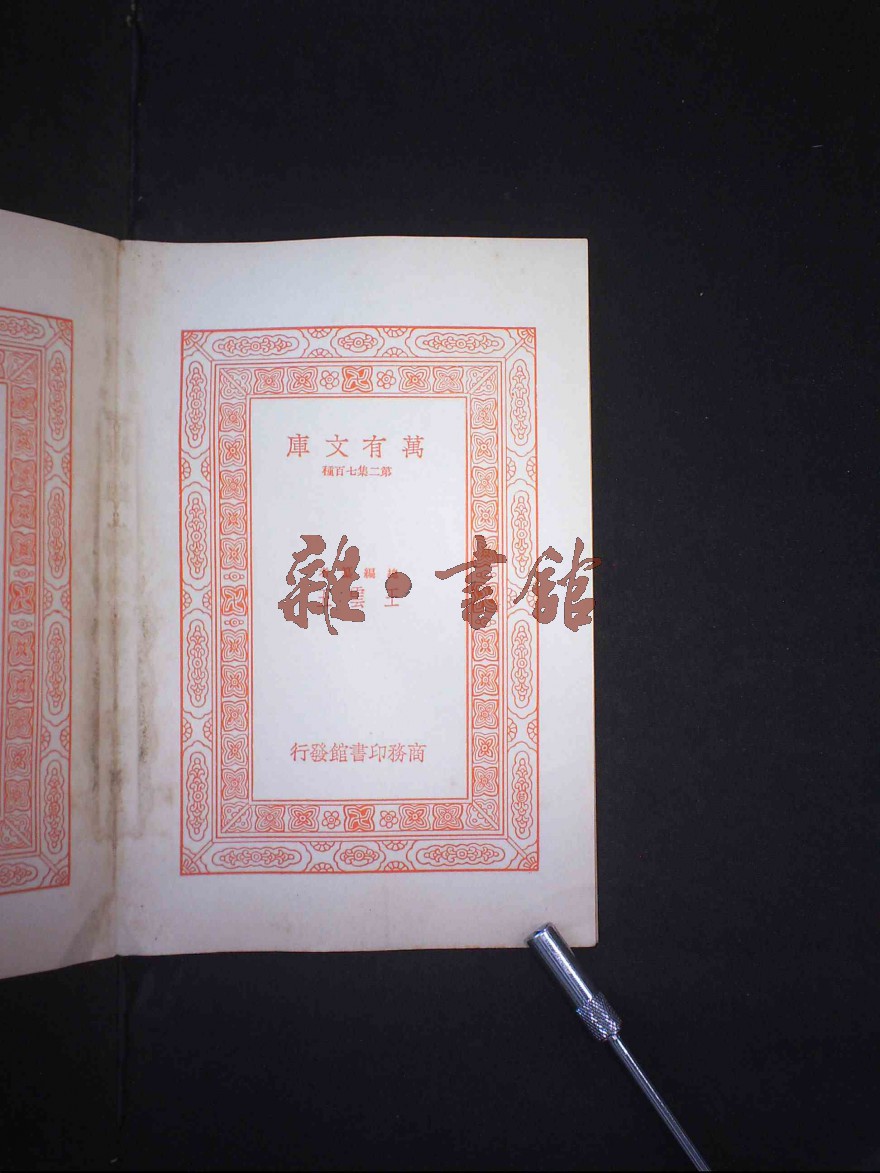 萬有文庫
第二集七百種
編
王雲
雜·書館
商務印書館發行